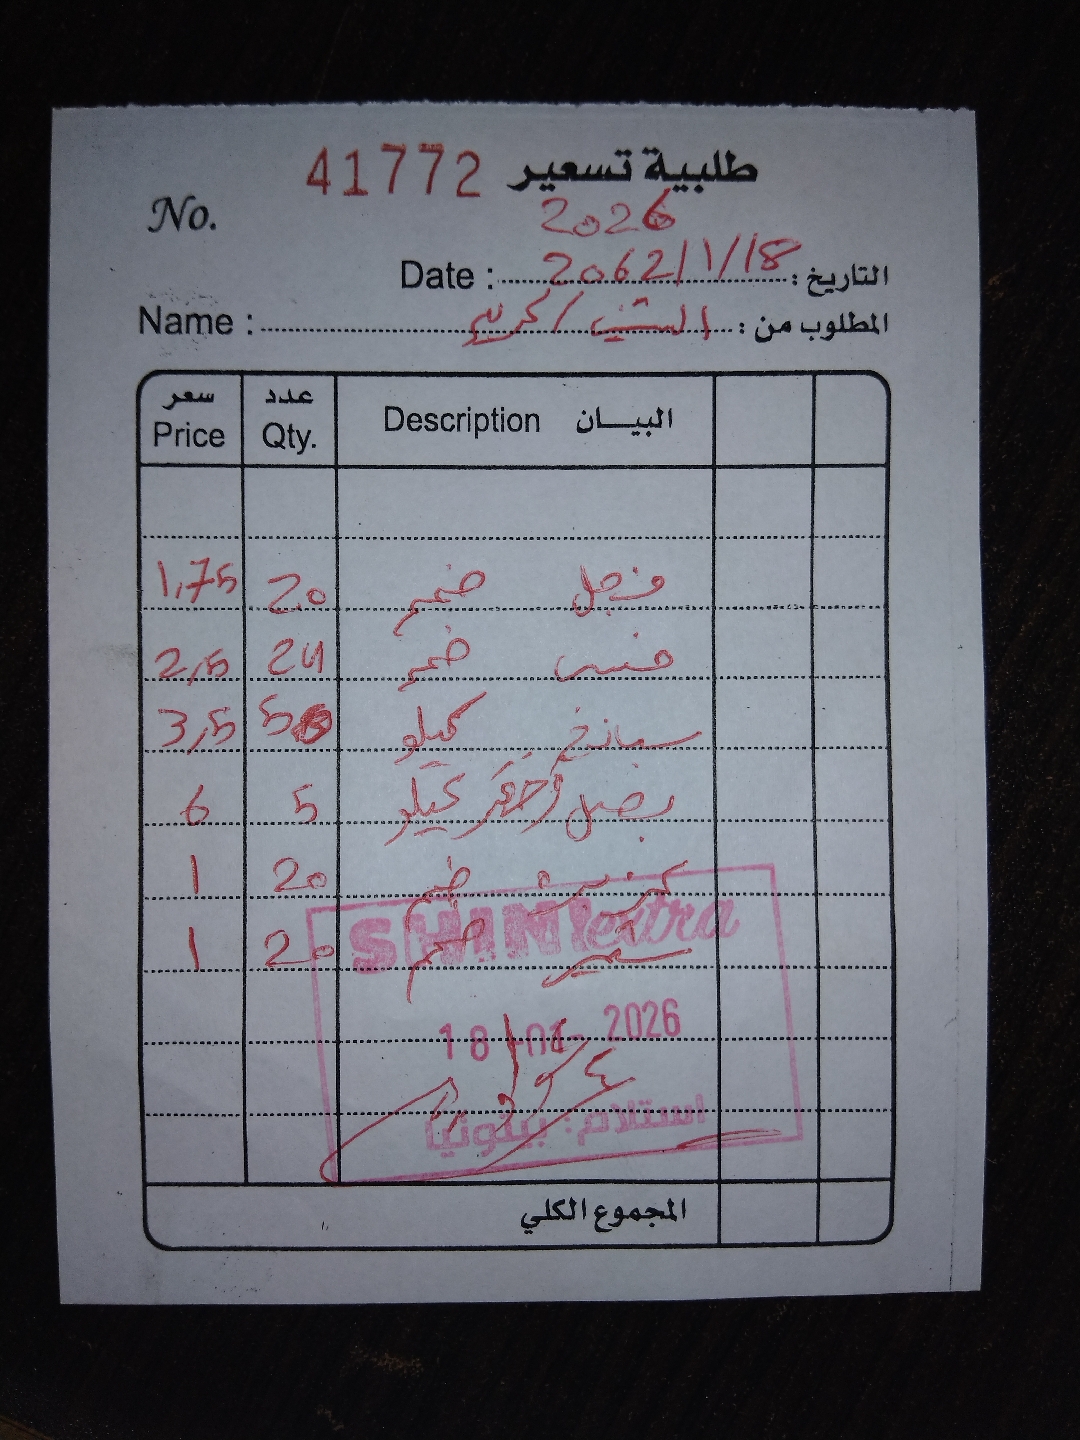 طلبية تسعير 41772
No.
2026
Date : 2062/1/18 التاريخ :
Name : / كريم المطلوب من :
سعر عدد
Price Qty. Description البيـــان
1,75 20 فجل ضمم
2,5 24 خس ضمم
3,5 5 سبانخ كيلو
6 5 بصل أخضر كيلو
1 20 ضمم
1 20 ضمم
SHINI extra
18-01-2026
استلام: بينونيا
المجموع الكلي